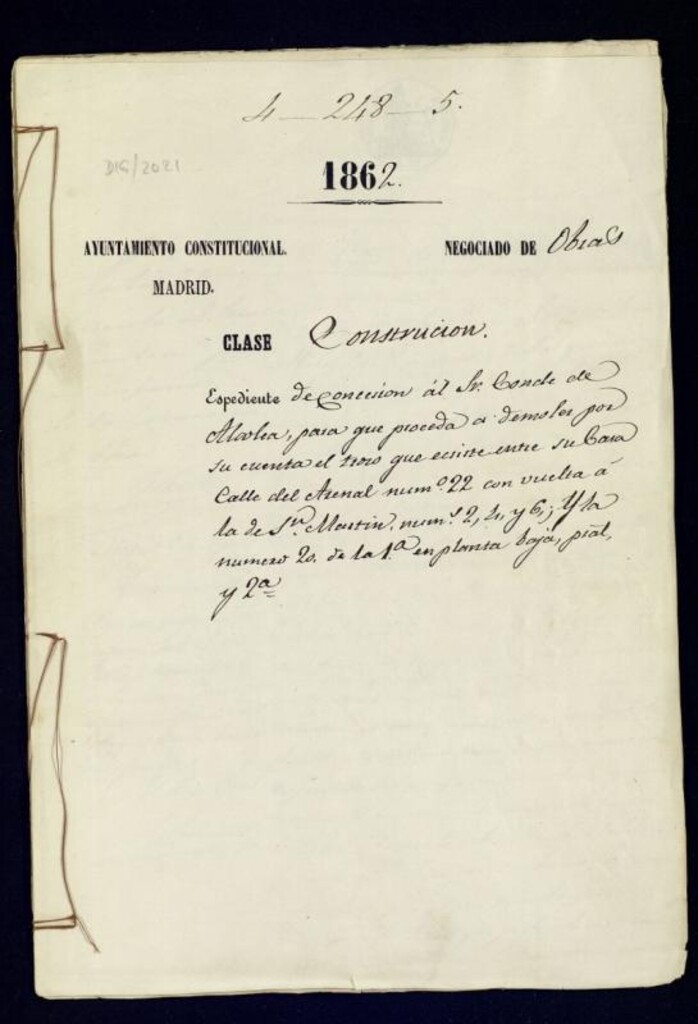 4 — 248 — 5.
DIG/2021
1862.
AYUNTAMIENTO CONSTITUCIONAL. NEGOCIADO DE Obras
MADRID.
CLASE Construcion.
Espediente de Concesion ál Sr. Conde de
Alcolea, para que proceda a demoler por
su cuenta el trozo que ecsiste entre su Casa
Calle del Arenal num.º 22 con vuelta á
la de Sn. Martin, num.s 2, 4, y 6; Y la
numero 20. de la 1.ª en planta baja, pral,
y 2ª